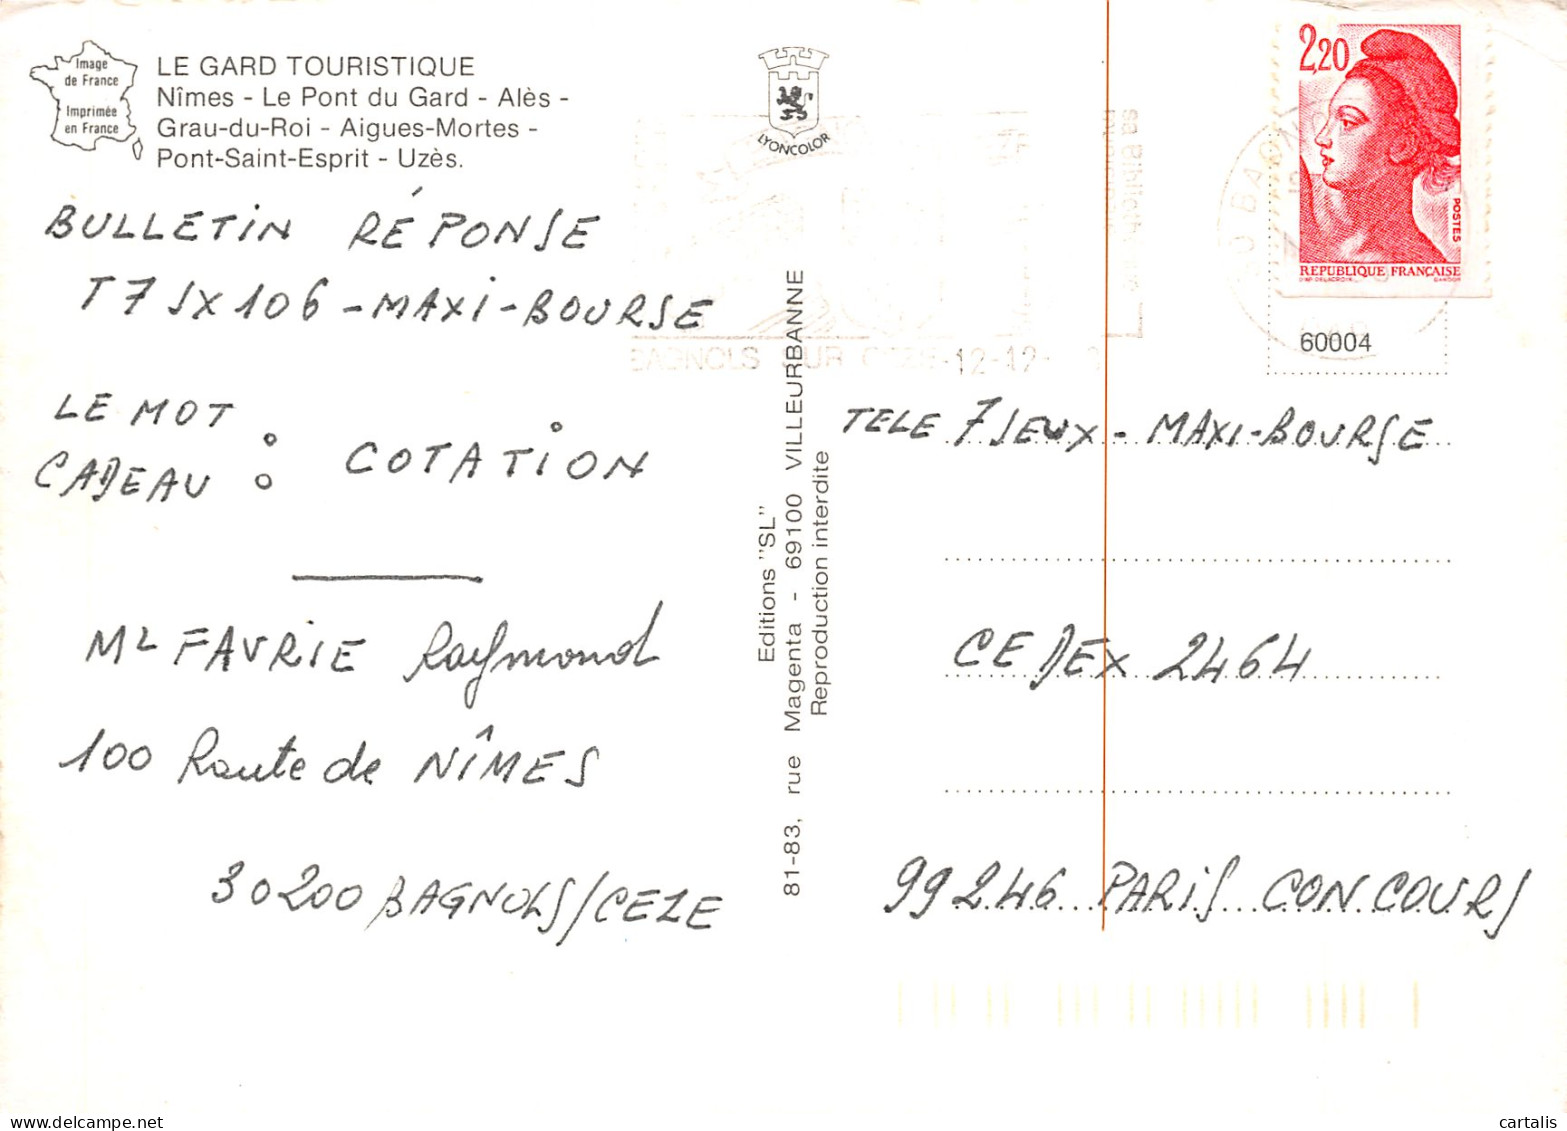 Image
de France
Imprimée
en France
LE GARD TOURISTIQUE
Nîmes - Le Pont du Gard - Alès -
Grau-du-Roi - Aigues-Mortes -
Pont-Saint-Esprit - Uzès.
LYONCOLOR
BULLETIN RÉPONSE
T7JX106 - MAXI-BOURSE
LE MOT
CADEAU : COTATION
Mr FAVRIE Raymond
100 Route de NÎMES
30200 BAGNOLS/CEZE
Editions "SL"
81-83, rue Magenta - 69100 VILLEURBANNE
Reproduction interdite
BAGNOLS SUR CEZE
12-12-
2,20
POSTES
REPUBLIQUE FRANÇAISE
60004
TELE 7 JEUX - MAXI-BOURSE
CEDEX 2464
99246 PARIS CONCOURS
cartalis